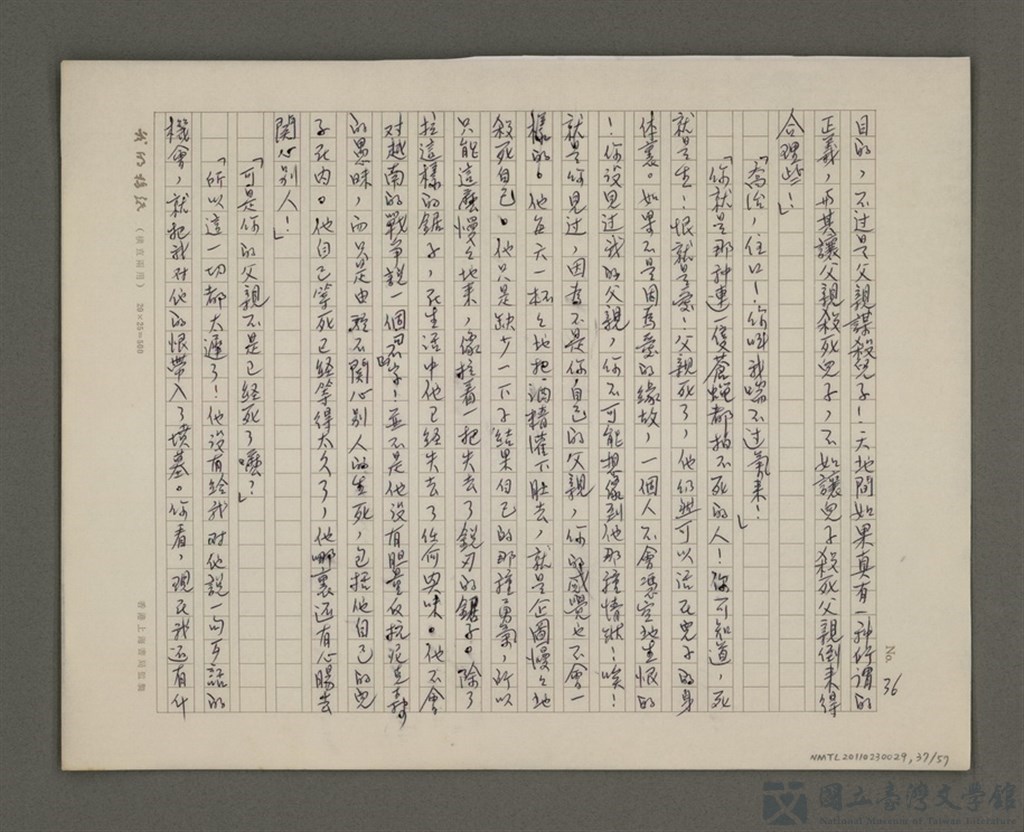 No. 36
目的，不过是父親謀殺兒子！天地間如果真有一种所谓的
正義，与其讓父親殺死兒子，不如讓兒子殺死父親倒来得
合理些！」
「喬治，住口！你叫我喘不过氣来！」
「你就是那种連一隻蒼蝇都拍不死的人！你可知道，死
就是生！恨就是愛！父親死了，他仍然可以活在兒子的身
体裏。如果不是因為愛的缘故，一個人不會憑空地生恨的
！你没見过我的父親，你不可能想像到他那種情狀！唉！
就是你見过，因為不是你自己的父親，你的感覺也不會一
樣的。他每天一杯杯地把酒精灌下肚去，就是企圖慢慢地
殺死自己。他只是缺少一下子結果自己的那種勇氣，所以
只能這麼慢慢地来，像拉着一把失去了鋭刃的鋸子。除了
拉這樣的鋸子，在生活中他已經失去了任何興味。他不會
对越南的戰争説一個不字！並不是他没有胆量反抗尼克森
的愚昧，而只是由於不關心别人的生死，包括他自己的兒
子在内。他自己等死已經等得太久了，他哪裏还有心腸去
関心别人！」
「可是你的父親不是已經死了嗎？」
「所以這一切都太遲了！他没有给我对他説一句真話的
機會，就把我对他的恨帶入了墳墓。你看，現在我还有什
我的稿纸 （橫直兩用） 20×25=500
香港上海書局監製
NMTL20110230029, 37/57
國立臺灣文學館
National Museum of Taiwan Literature